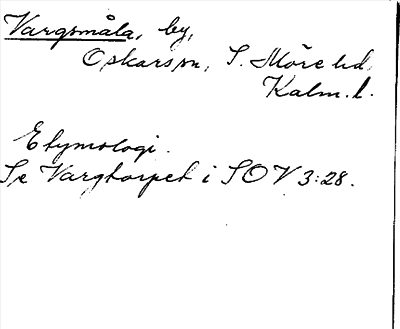 Vargsmåla, by,
Oskars sn, S. Möre hd
Kalm. l.
Etymologi.
Se Vargtorpet i SOV 3:28.